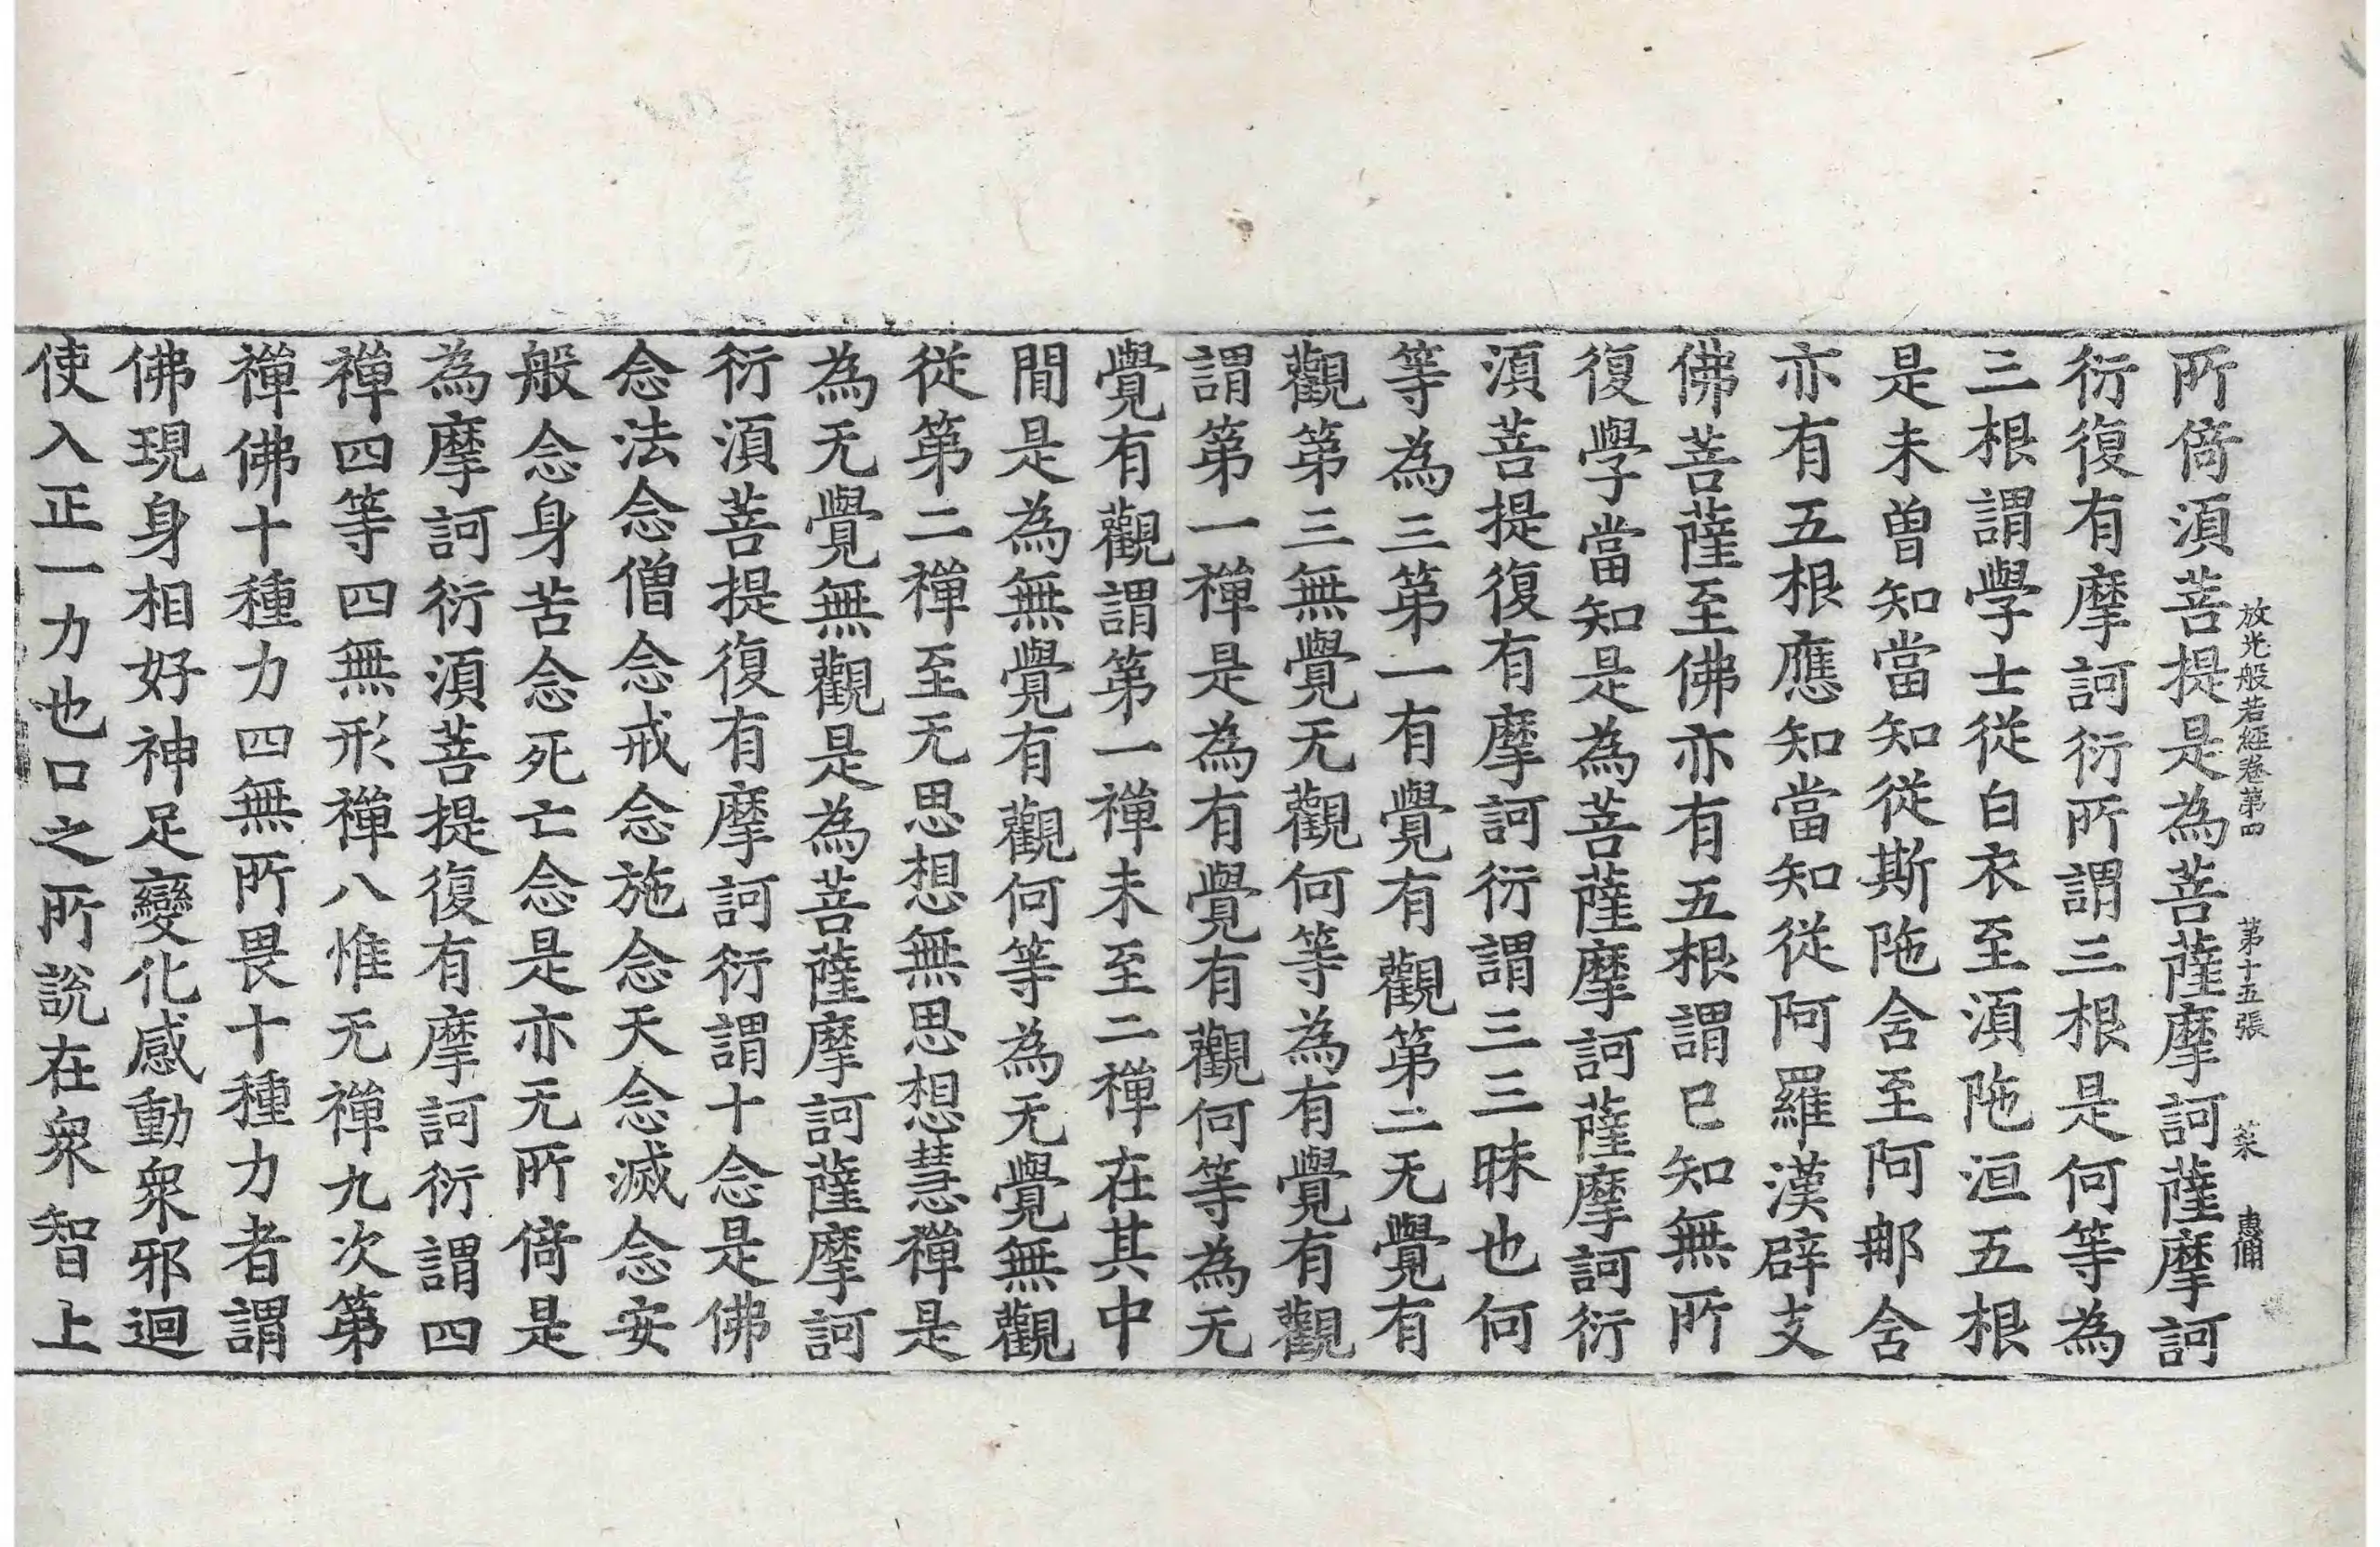 放光般若經卷第四 第十五張 菜 惠備
所倚湏菩提是為菩薩摩訶薩摩訶
衍復有摩訶衍所謂三根是何等為
三根謂學士從白衣至湏陁洹五根
是未曾知當知從斯陁含至阿那含
亦有五根應知當知從阿羅漢辟支
佛菩薩至佛亦有五根謂已知無所
復學當知是為菩薩摩訶薩摩訶衍
湏菩提復有摩訶衍謂三三昧也何
等為三第一有覺有觀第二无覺有
觀第三無覺无觀何等為有覺有觀
謂第一禪是為有覺有觀何等為无
覺有觀謂第一禪未至二禪在其中
閒是為無覺有觀何等為无覺無觀
從第二禪至无思想無思想慧禪是
為无覺無觀是為菩薩摩訶薩摩訶
衍湏菩提復有摩訶衍謂十念是佛
念法念僧念戒念施念天念滅念安
般念身苦念死亡念是亦无所倚是
為摩訶衍湏菩提復有摩訶衍謂四
禪四等四無形禪八惟无禪九次第
禪佛十種力四無所畏十種力者謂
佛現身相好神足變化感動衆邪迴
使入正一力也口之所說在衆智上